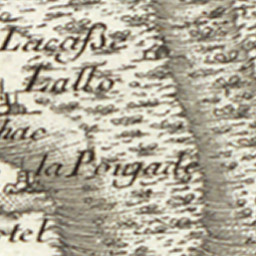 Lacaſse
Lallo
hac
la Pougade
otel